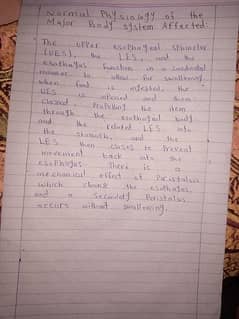 Normal Physiology of the
Major Body system Affected:
The upper esophageal sphincter
(UES), the LES, and the
esothagus function in a coordinated
manner to allow for swallowing
when food is ingested, the
UES is relaxed and then
closed, Propelling the item
through the esophageal body
and the related LES into
the stomach, and the
LES then closes to Prevent
movement back into the
esophagus. There is a
mechanical effect of Peristalsis
which change the esothagus,
and a secondary Peristalsis
occurs without swallowing.